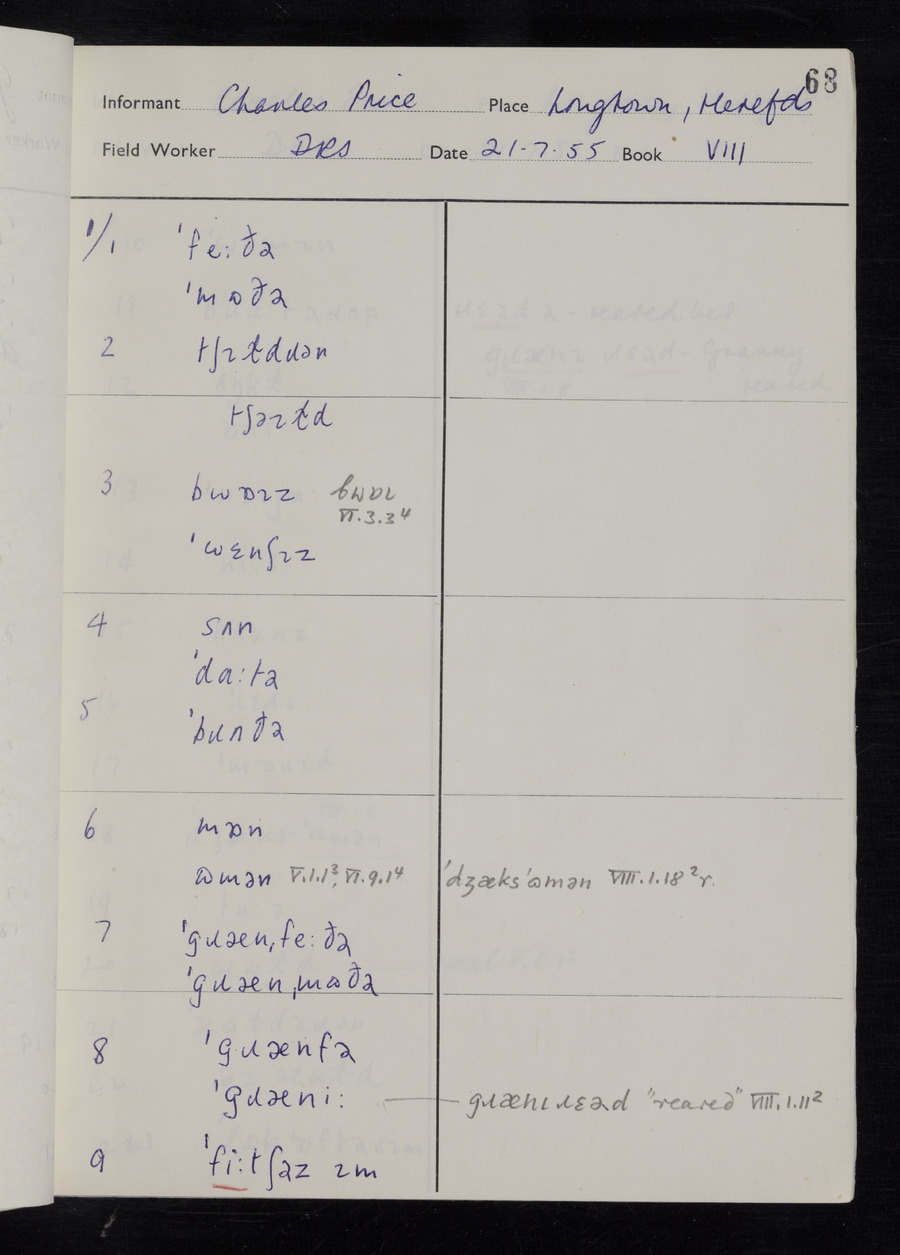 68
Informant Charles Price Place Longtown, Herefds
Field Worker DRS Date 21-7-55 Book VIII
1/1 ˈfeːðə
ˈmɷðə
2 tʃɪɫdɹən
tʃəɪɫd
3 bwɒɪz bwɒɪ
VI.3.3⁴
ˈwɛnʃɪz
4 sʌn
ˈdaːtə
5 ˈbɹʌðə
6 mɒn
ɷmən V.1.1³; VI.9.14 ˈdʒæksˈɷmən VIII.1.18²r.
7 ˈgɹæn,feːðə
ˈgɹæn,mɷðə
8 ˈgɹænfə
ˈgɹæniː gɹænɪ ɹɛəd "reared" VIII.1.11²
9 ˈfiːtʃəz ɪm